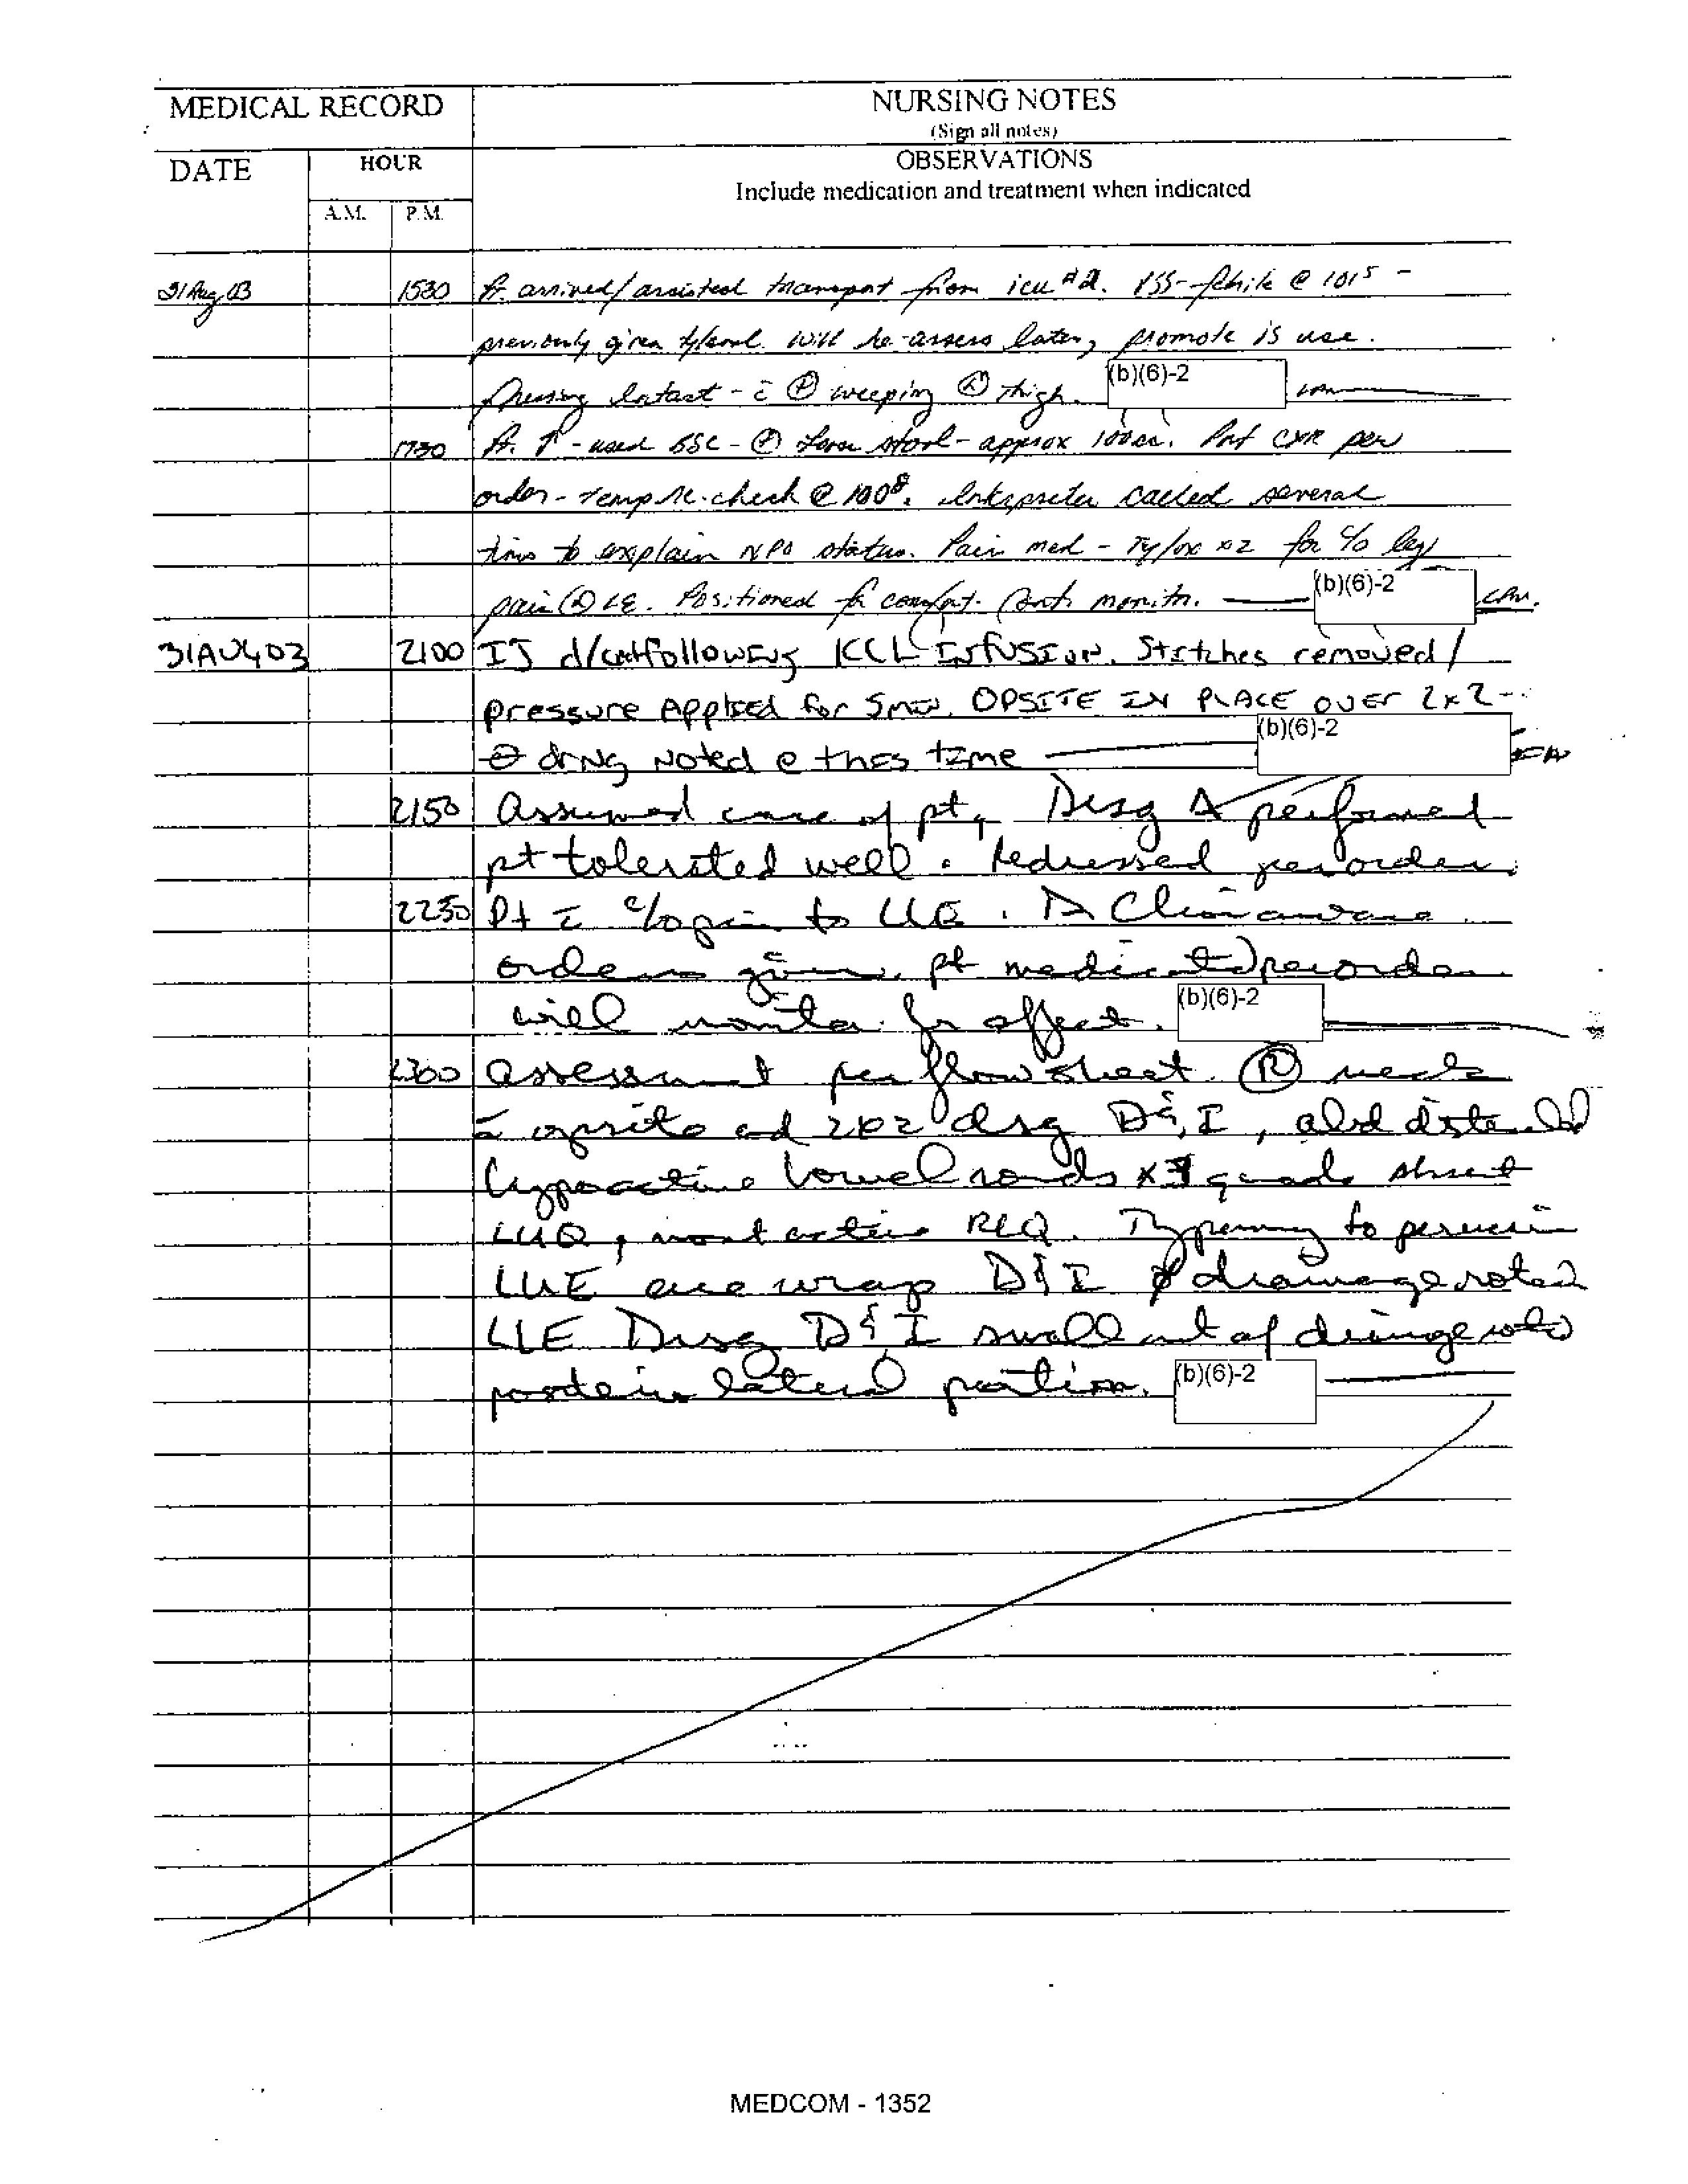 MEDICAL RECORD
NURSING NOTES
(Sign all notes)
DATE
HOUR
OBSERVATIONS
Include medication and treatment when indicated
A.M.
P.M.
31 Aug 03 1530 Pt arrived/assisted transport from icu #2. VSS - febrile @ 101⁵ -
previously given tylenol. Will re-assess later, promote is use.
Dressing intact - c̄ ⊕ weeping Ⓛ thigh. (b)(6)-2
1730 Pt. ↑ - used BSC - ⊕ loose stool - approx 100cc. Port CXR per
order - temp re-check @ 100⁸. Interpreter called several
times to explain NPO status. Pain med - Tylox x2 for c/o leg
pain Ⓛ LE. Positioned for comfort. Cont. monitor. (b)(6)-2
31AUG03 2100 IJ d/c following KCL INFUSION. Stitches removed/
pressure Applied for 5 min. OPSITE IN PLACE OVER 2x2 -
⊖ drng Noted @ this time (b)(6)-2
2150 Assumed care of pt, Drsg Δ performed
pt tolerated well. Redressed per order.
2230 Pt c̄ c/o pain to LUE. aware
orders given. pt medicated per order
will monitor for effect. (b)(6)-2
2300 assessment per flow sheet. Ⓡ neck
c̄ opsite and 2x2 drsg D&I, abd distended
hypoactive bowel sounds x3 quads absent
LUQ, most active RLQ.
LUE ace wrap D&I drainage noted
LLE Drsg D&I small amt of drainage noted
lateral portion. (b)(6)-2
MEDCOM - 1352